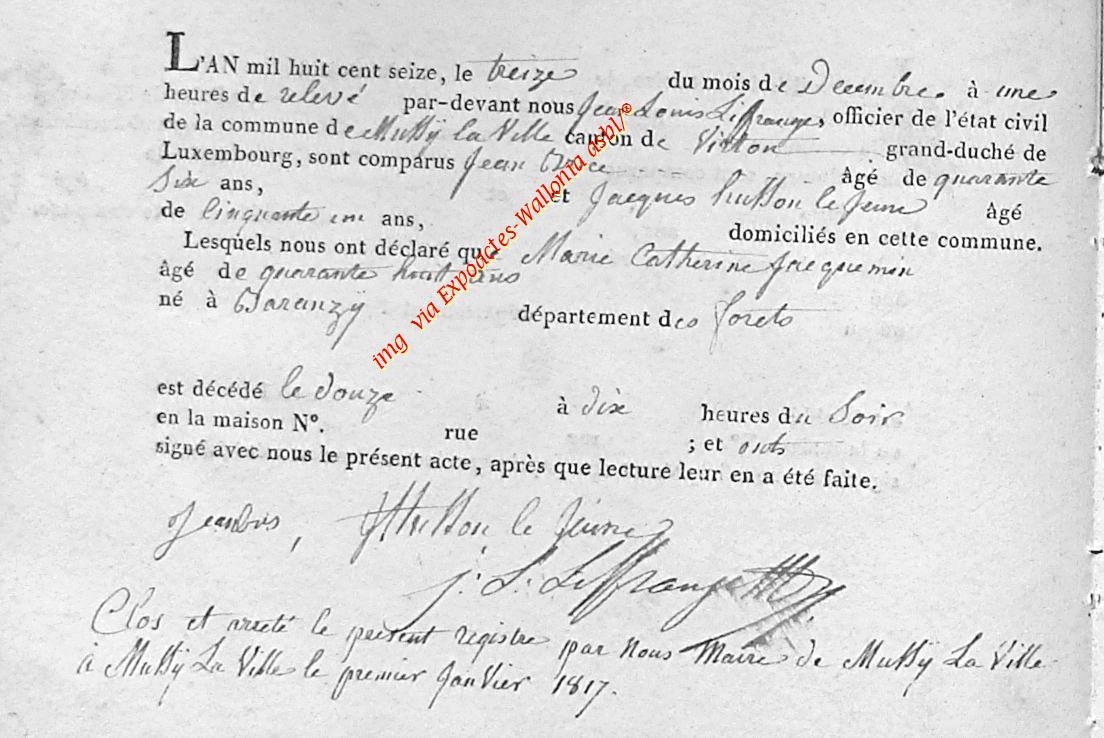 L'AN mil huit cent seize, le treize du mois de Decembre à une
heures de relevé par-devant nous Jean Louis Liffrange, officier de l'état civil
de la commune de Mussÿ la Ville canton de Virton grand-duché de
Luxembourg, sont comparus Jean âgé de quarante
Six ans, et Jacques husson le Jeune âgé
de Cinquante un ans, domiciliés en cette commune.
Lesquels nous ont déclaré que Marie Catherine Jacquemin
âgé de quarante huit ans
né à Baranzÿ département des forets
est décédé le douze à dix heures du Soir
en la maison N°. rue ; et onts
signé avec nous le présent acte, après que lecture leur en a été faite.
husson le Jeune
J. L. Liffrange
Clos et arreté le present registre par nous Maire de Mussÿ La Ville
à Mussÿ La Ville le premier Janvier 1817.
img via Expoactes-Wallonia asbl/®